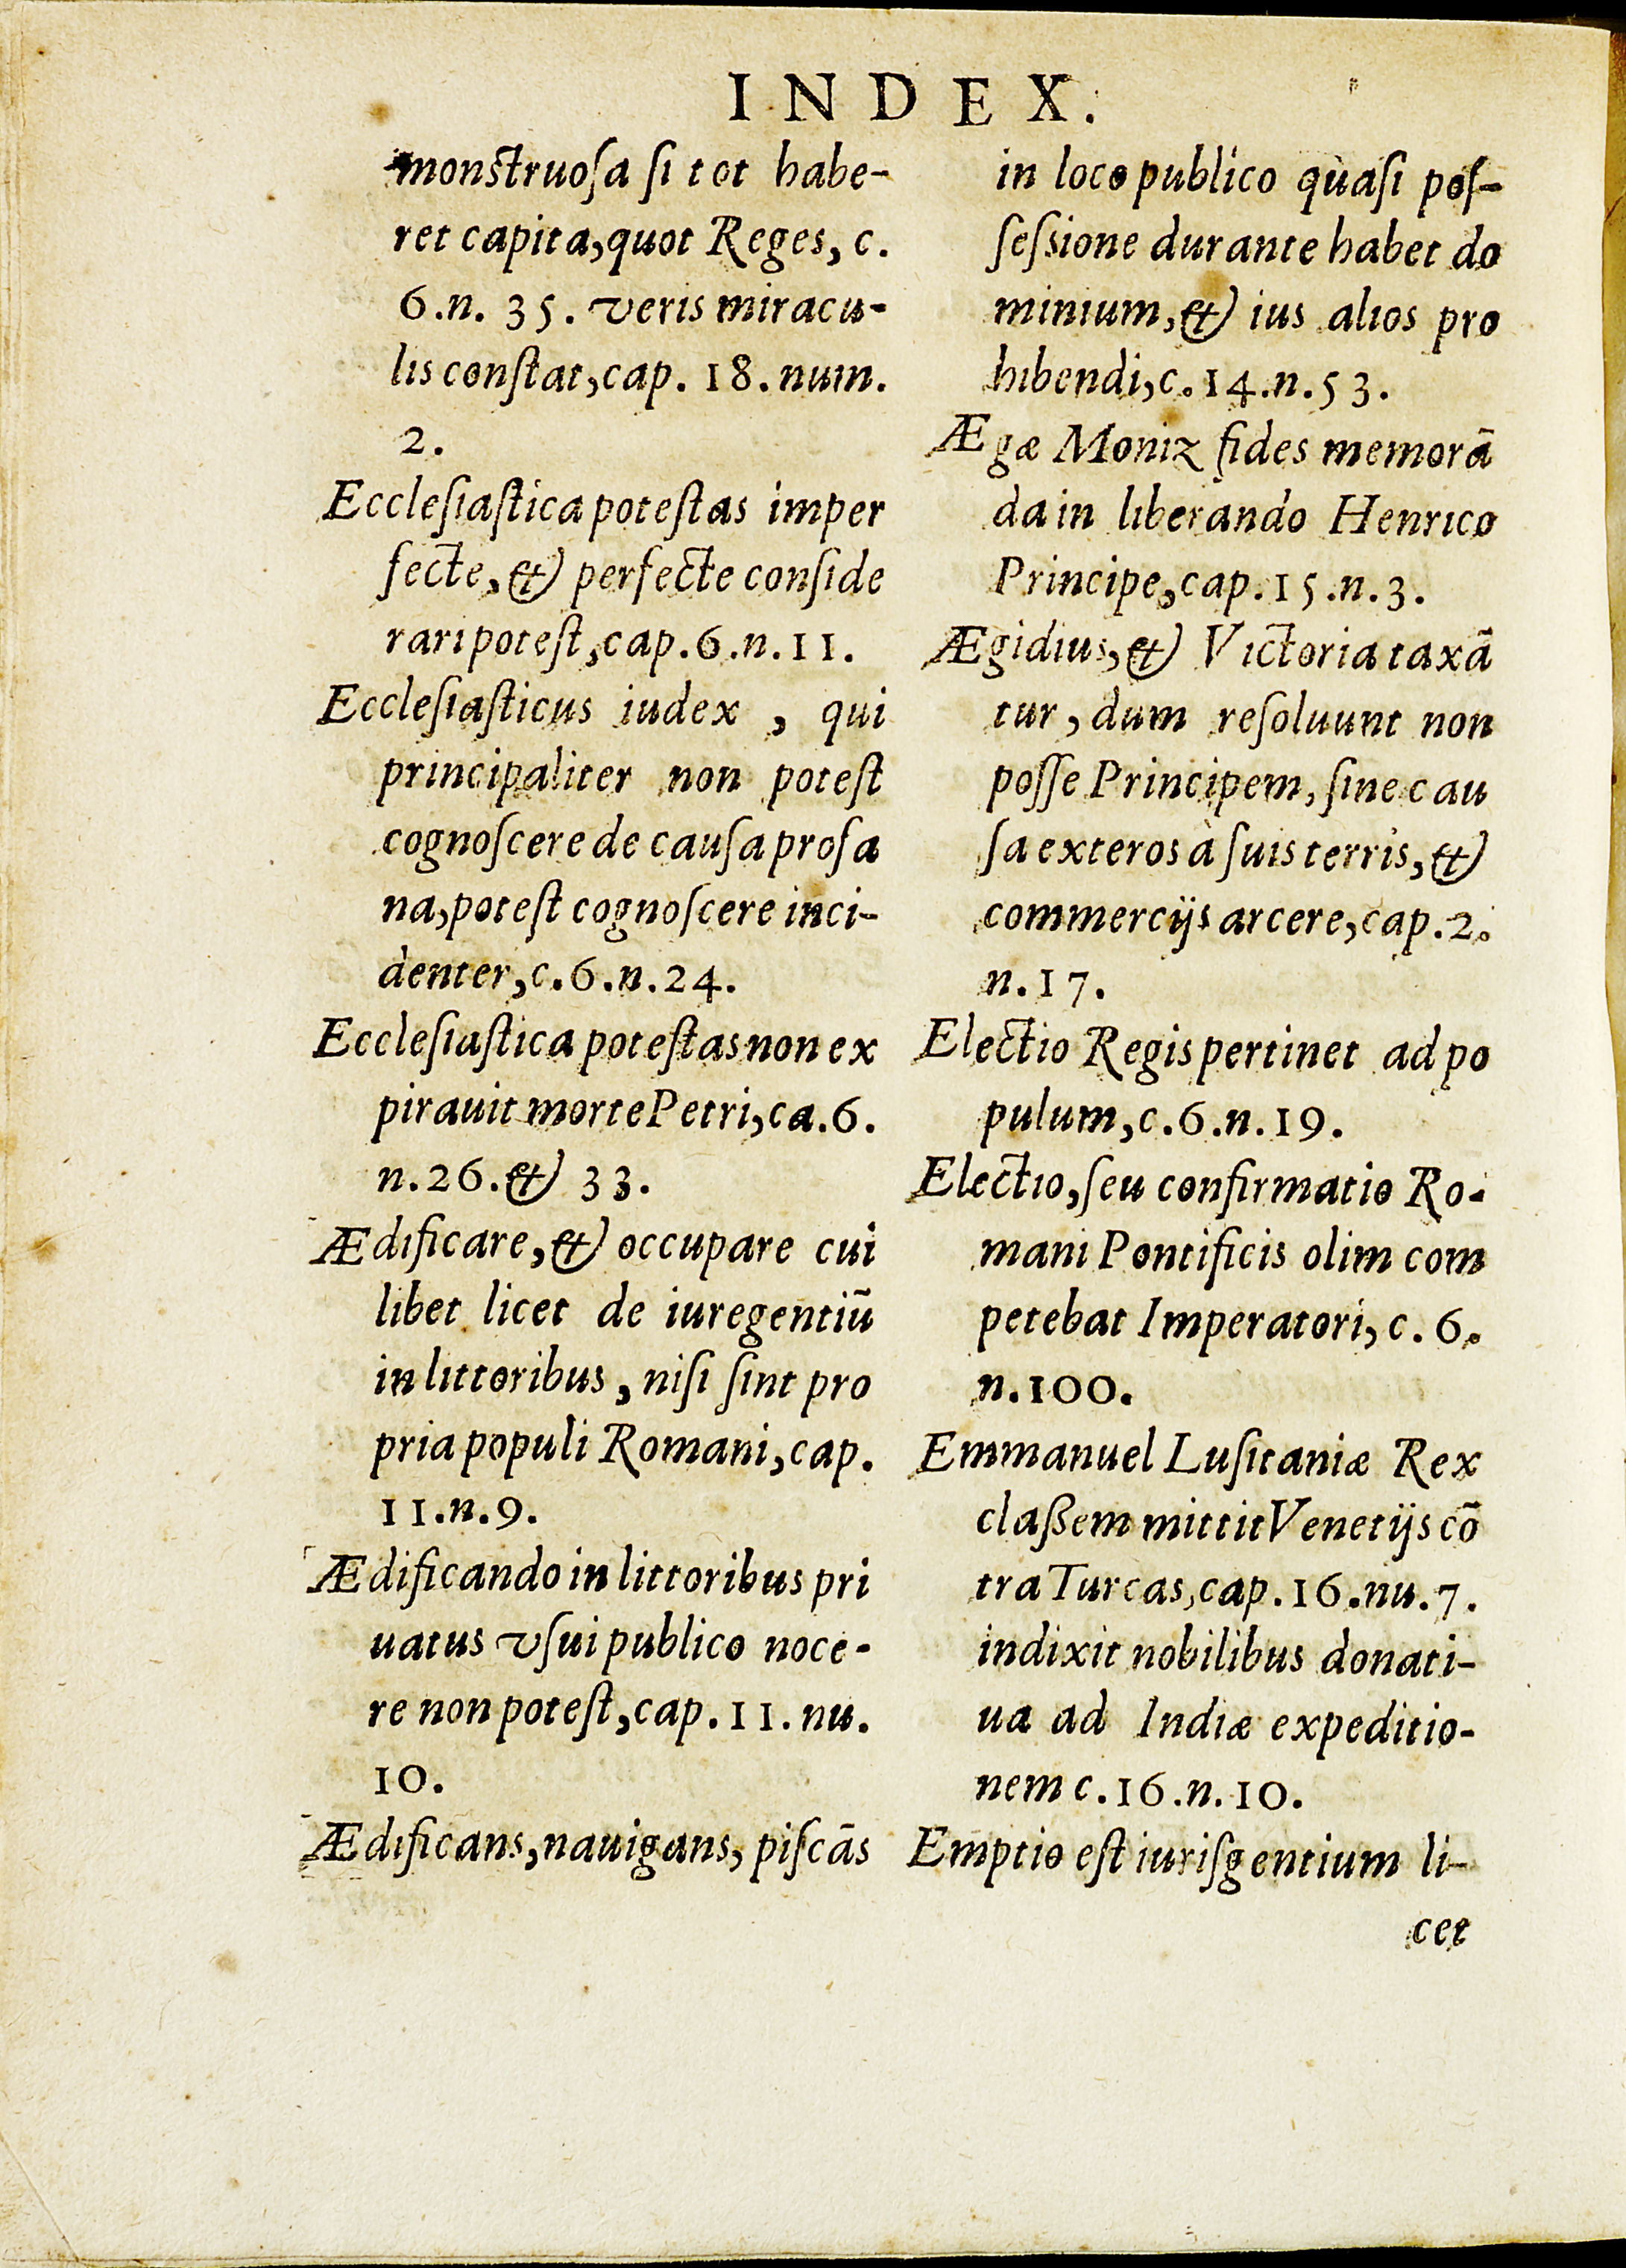 INDEX.
monstruoſa ſi tot habe-
ret capita, quot Reges, c.
6.n. 35. veris miracu-
lis conſtat, cap. 18. num.
2.
Eccleſiaſtica poteſtas imper
fecte, & perfecte conſide
rari poteſt, cap. 6.n.11.
Eccleſiaſticus iudex, qui
principaliter non poteſt
cognoſcere de cauſa profa
na, poteſt cognoſcere inci-
denter, c.6.n.24.
Eccleſiaſtica poteſtas non ex
pirauit morte Petri, ca.6.
n.26. & 33.
Ædificare, & occupare cui
libet licet de iure gentiũ
in littoribus, niſi ſint pro
pria populi Romani, cap.
11.n.9.
Ædificando in littoribus pri
uatus vſui publico noce-
re non poteſt, cap. 11. nu.
10.
Ædificans, nauigans, piſcãs
in loco publico quàſi poſ-
ſeſsione durante habet do
minium, & ius alios pro
hibendi, c. 14.n.53.
Ægæ Moniz fides memorã
da in liberando Henrico
Principe, cap. 15.n.3.
Ægidius, & Victoria taxã
tur, dum reſoluunt non
poſſe Principem, ſine cau
ſa exteros à ſuis terris, &
commercijs arcere, cap. 2.
n. 17.
Electio Regis pertinet ad po
pulum, c.6.n.19.
Electio, ſeu confirmatio Ro-
mani Pontificis olim com
petebat Imperatori, c. 6.
n.100.
Emmanuel Luſitaniæ Rex
claßem mittit Venetijs cõ
tra Turcas, cap. 16.nu.7.
indixit nobilibus donati-
ua ad Indiæ expeditio-
nem c. 16.n.10.
Emptio eſt iuriſgentium li-
cet